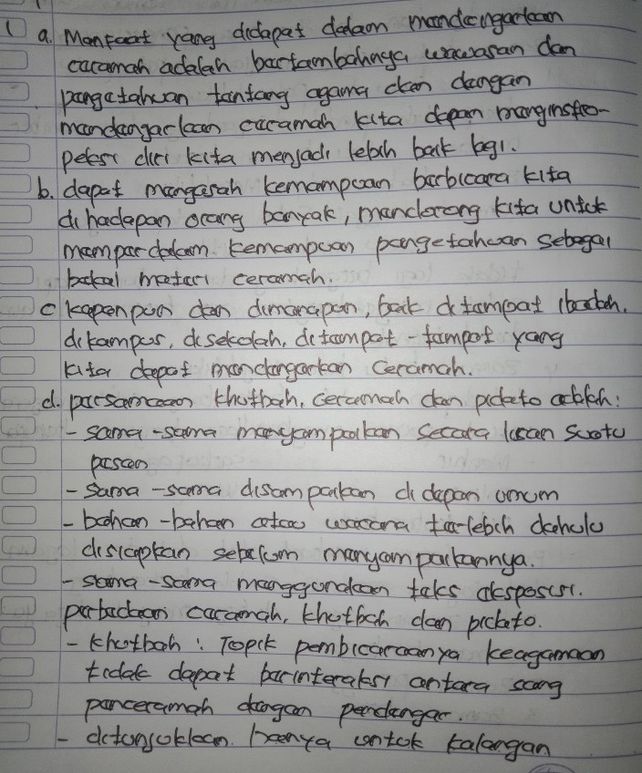 1 a. Manfaat yang didapat dalam mendengarkan
ceramah adalah bertambahnya wawasan dan
pengetahuan tentang agama dan dengan
mendengarkan ceramah kita dapan menginstro-
peksi diri kita menjadi lebih baik lagi.
b. dapat mengasah kemampuan berbicara kita
di hadapan orang banyak, mendorong kita untuk
memperdalam kemampuan pengetahuan sebagai
bakal materi ceramah.
c kapanpun dan dimanapun, baik di tempat ibadah,
dikampus, disekolah, ditempat - tempat yang
kita dapat mendengarkan ceramah.
d. persamaan khotbah, ceramah dan pidato adalah:
- sama - sama menyampaikan secara lisan suatu
pesan
- sama - sama disampaikan di depan umum
- bahan - bahan atau wacana terlebih dahulu
disiapkan sebelum menyampaikannya.
- sama - sama menggunakan teks eksposisi.
perbedaan ceramah, khotbah dan pidato.
- khotbah : Topik pembicaraanya keagamaan
tidak dapat berinteraksi antara sang
penceramah dengan pendengar.
- ditunjukkan hanya untuk kalangan